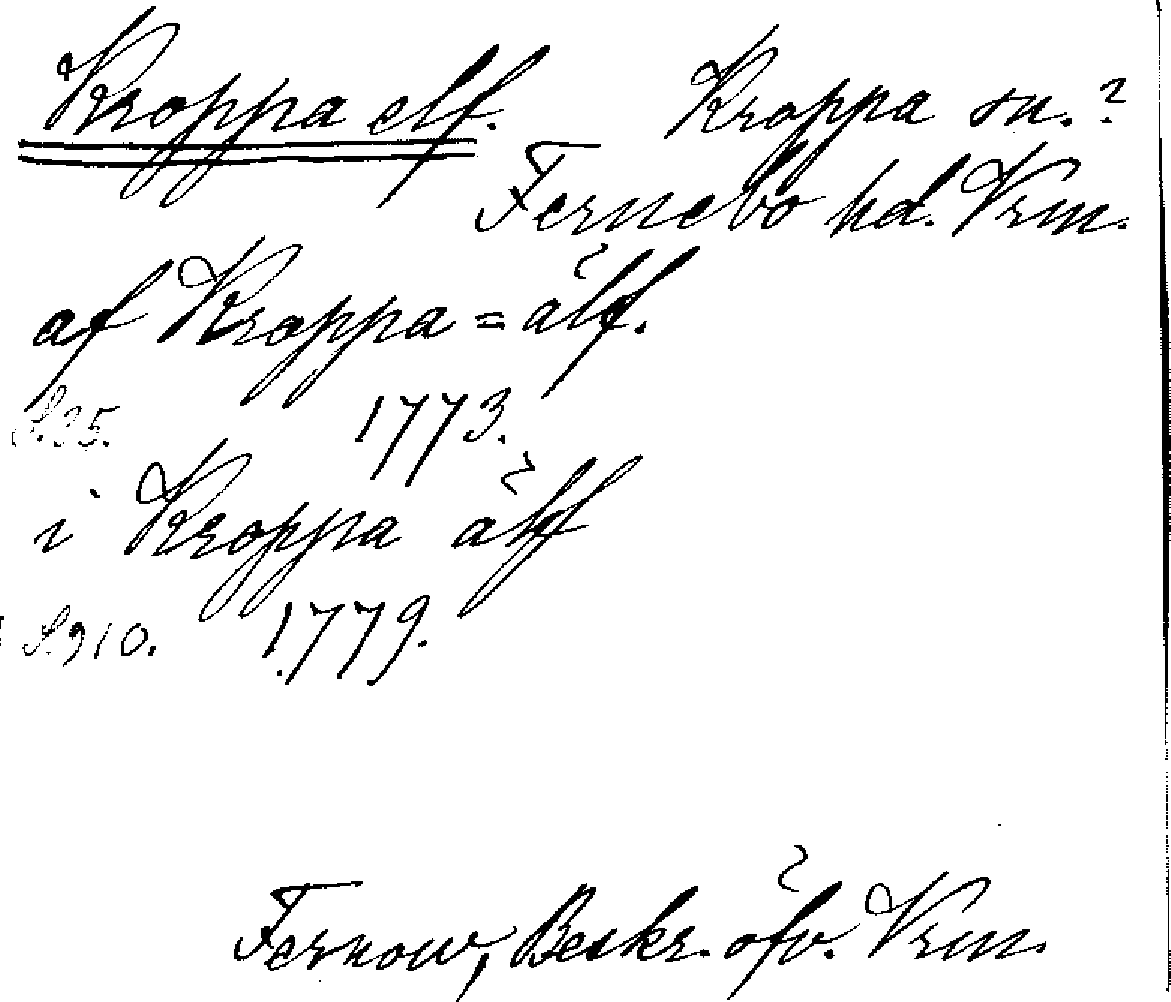 Kroppa elf. Kroppa sn.?
Fernebo hd. Vrm.
af Kroppa=älf.
S.35. 1773.
i Kroppa älf
S.910. 1779.
Fernow, Beskr. öfv. Vrm.